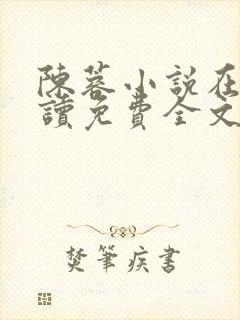 陳蓉小說在
讀免費全文
焚筆疾書